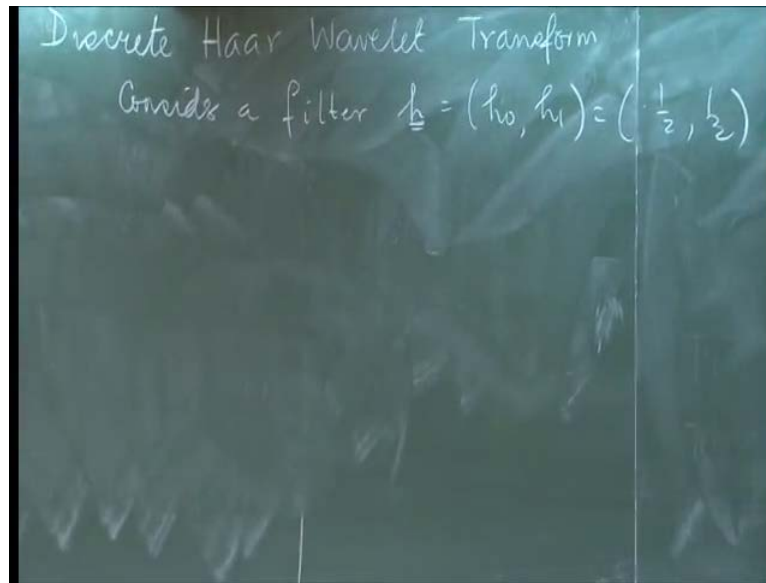 Discrete Haar Wavelet Transform
Consider a filter h = (h0, h1) = (1/2, 1/2)